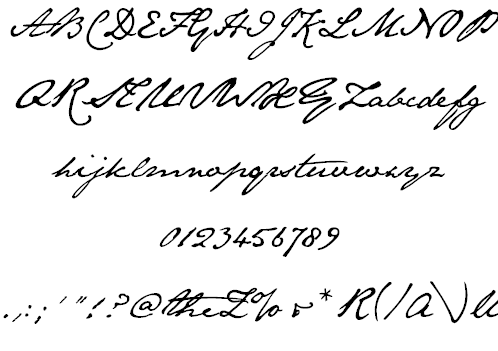 ABCDEFGHIJKLMNOP
QRSTUVWXYZabcdefg
hijklmnopqrstuvwxyz
0123456789
.,:;'"!?@the